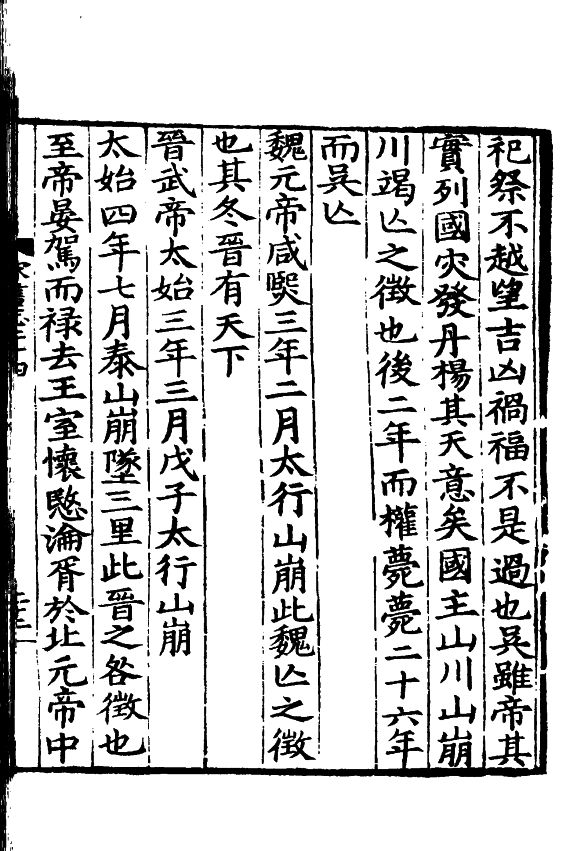 祀祭不越望吉凶禍福不是過也吳雖帝其
實列國灾發丹楊其天意矣國主山川山崩
川竭亾之徵也後二年而權薨薨二十六年
而吳亾
魏元帝咸熙三年二月太行山崩此魏亾之徵
也其冬晉有天下
晉武帝太始三年三月戊子太行山崩
太始四年七月泰山崩墜三里此晉之咎徵也
至帝晏駕而禄去王室懷愍淪胥於北元帝中
宋書志二十四